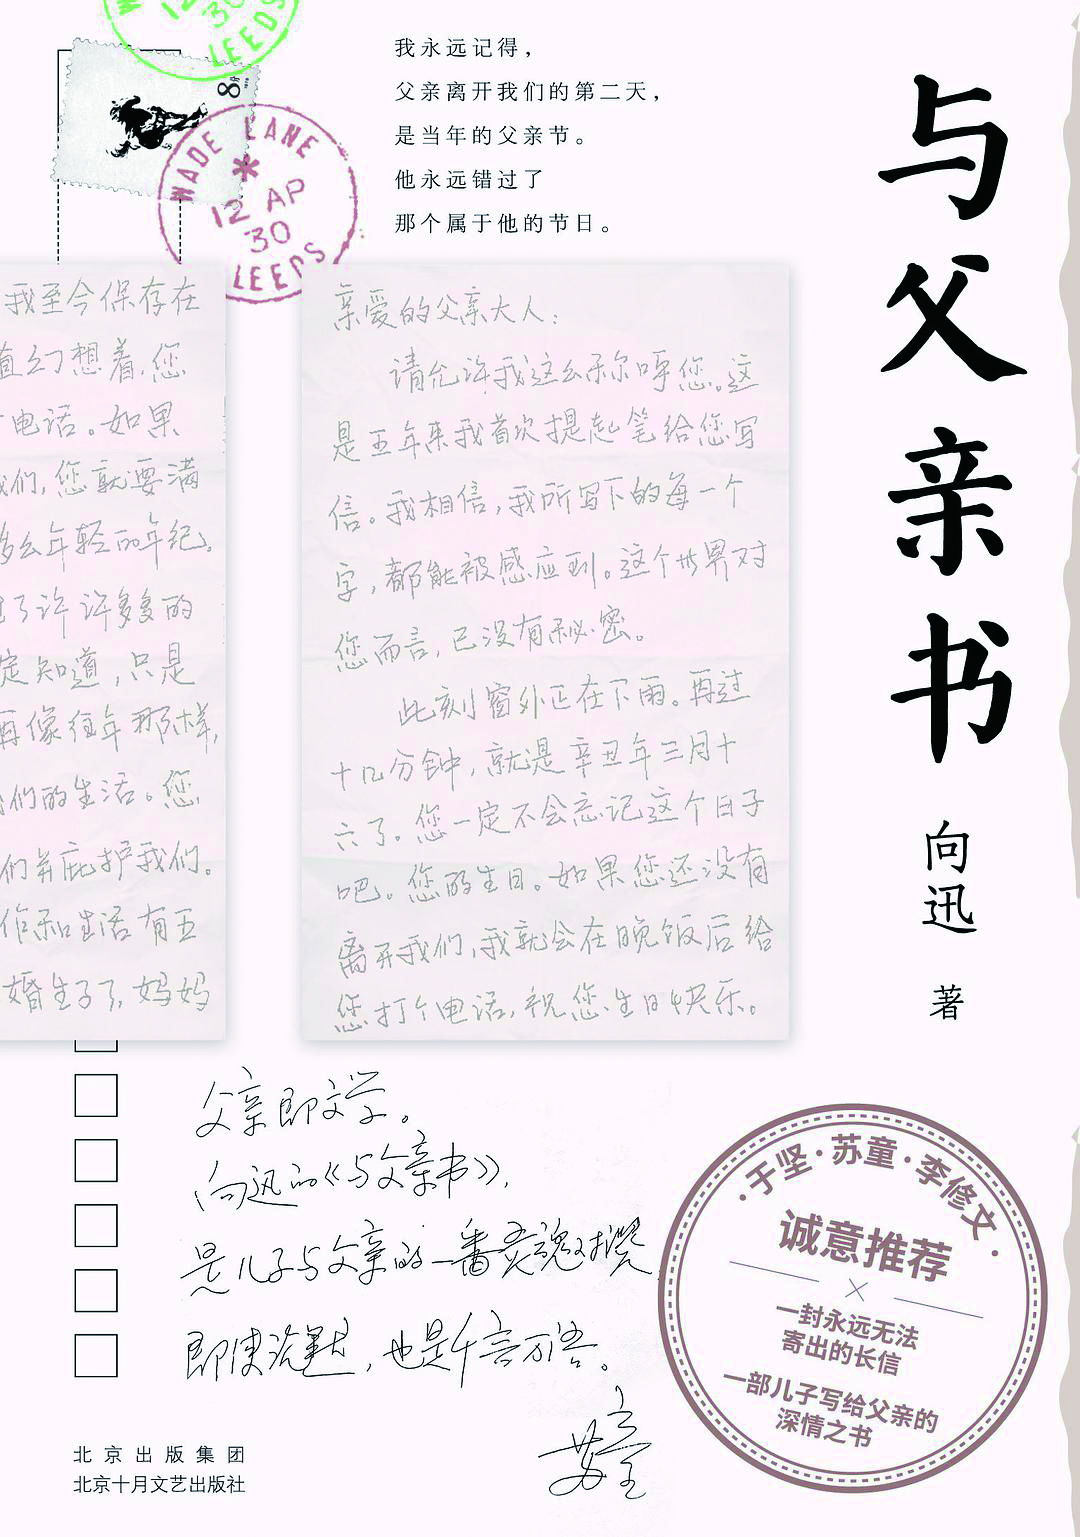 WADE LANE
12 AP
30
LEEDS
8
12
30
LEEDS
我永远记得，
父亲离开我们的第二天，
是当年的父亲节。
他永远错过了
那个属于他的节日。
与父亲书
向迅 著
我至今保存在
直幻想着，您
电话。如果
我们，您就要满
多么年轻的年纪。
了许许多多的
定知道，只是
再像往年那样，
我们的生活。您
们并庇护我们。
作和生活有五
婚生子了，妈妈
亲爱的父亲大人：
请允许我这么称呼您。这
是五年来我首次提起笔给您写
信。我相信，我所写下的每一个
字，都能被感应到。这个世界对
您而言，已没有秘密。
此刻窗外正在下雨。再过
十几分钟，就是辛丑年三月十
六了。您一定不会忘记这个日子
吧。您的生日。如果您还没有
离开我们，我就会在晚饭后给
您打个电话，祝您生日快乐。
父亲即文学。
向迅的《与父亲书》，
是儿子与父亲的一番灵魂对撰，
即使沉默，也是千言万语。
苏童
·于坚·苏童·李修文·
诚意推荐
一封永远无法
寄出的长信
一部儿子写给父亲的
深情之书
北京出版集团
北京十月文艺出版社